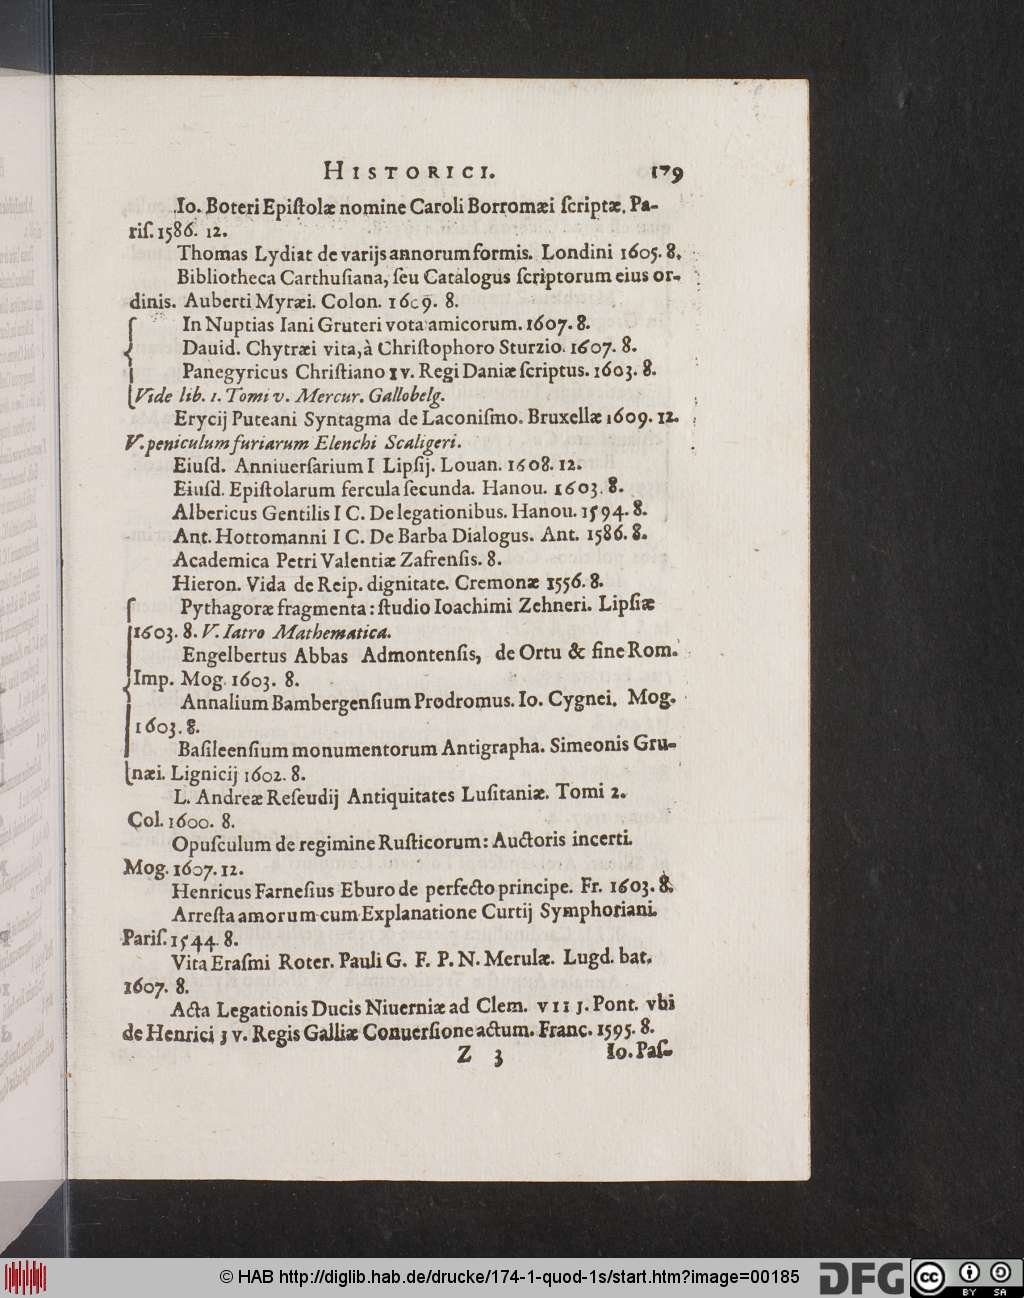 HISTORICI. 179
Io. Boteri Epiſtolæ nomine Caroli Borromæi ſcriptæ. Pa-
riſ. 1586. 12.
Thomas Lydiat de varijs annorum formis. Londini 1605. 8.
Bibliotheca Carthuſiana, ſeu Catalogus ſcriptorum eius or-
dinis. Auberti Myræi. Colon. 1609. 8.
In Nuptias Iani Gruteri vota amicorum. 1607. 8.
Dauid. Chytræi vita, à Chriſtophoro Sturzio. 1607. 8.
Panegyricus Chriſtiano IV. Regi Daniæ ſcriptus. 1603. 8.
Vide lib. 1. Tomi v. Mercur. Gallobelg.
Erycij Puteani Syntagma de Laconiſmo. Bruxellæ 1609. 12.
V. peniculum furiarum Elenchi Scaligeri.
Eiuſd. Anniuerſarium I Lipſij. Louan. 1608. 12.
Eiuſd. Epiſtolarum fercula ſecunda. Hanou. 1603. 8.
Albericus Gentilis I C. De legationibus. Hanou. 1594. 8.
Ant. Hottomanni I C. De Barba Dialogus. Ant. 1586. 8.
Academica Petri Valentiæ Zafrenſis. 8.
Hieron. Vida de Reip. dignitate. Cremonæ 1556. 8.
Pythagoræ fragmenta: ſtudio Ioachimi Zehneri. Lipſiæ
1603. 8. V. Iatro Mathematica.
Engelbertus Abbas Admontenſis, de Ortu & fine Rom.
Imp. Mog. 1603. 8.
Annalium Bambergenſium Prodromus. Io. Cygnei. Mog.
1603. 8.
Baſileenſium monumentorum Antigrapha. Simeonis Gru-
næi. Lignicij 1602. 8.
L. Andreæ Reſeudij Antiquitates Luſitaniæ. Tomi 2.
Col. 1600. 8.
Opuſculum de regimine Ruſticorum: Auctoris incerti.
Mog. 1607. 12.
Henricus Farneſius Eburo de perfecto principe. Fr. 1603. 8.
Arreſta amorum cum Explanatione Curtij Symphoriani.
Pariſ. 1544. 8.
Vita Eraſmi Roter. Pauli G. F. P. N. Merulæ. Lugd. bat.
1607. 8.
Acta Legationis Ducis Niuerniæ ad Clem. VIIJ. Pont. vbi
de Henrici JV. Regis Galliæ Conuerſione actum. Franc. 1595. 8.
Z 3 Io. Paſ-
© HAB http://diglib.hab.de/drucke/174-1-quod-1s/start.htm?image=00185
DFG cc BY SA